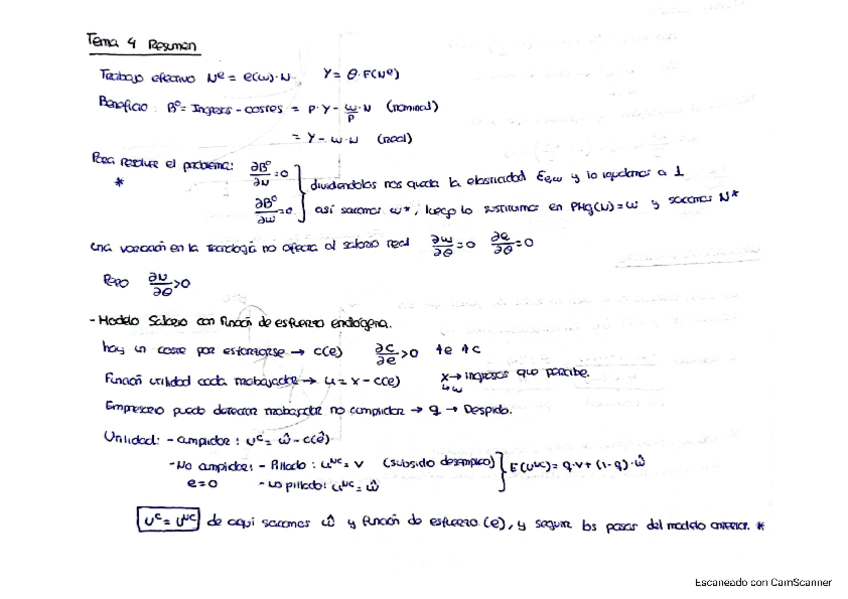 Tema 4 Resumen
Trabajo efectivo Nᵉ = e(ω)·N. Y = θ·F(Nᵉ)
Beneficio: Bº = Ingresos - costes = P·Y - ω/P·N (nominal)
= Y - ω·N (real)
Para resolver el problema: ∂Bº/∂N = 0
* ∂Bº/∂ω = 0 } dividiéndolos nos queda la elasticidad Ee,ω y lo igualamos a 1
así sacamos ω*, luego lo sustituimos en PMg(N) = ω y sacamos N*
Una variación en la tecnología no afecta al salario real ∂ω/∂θ = 0 ∂e/∂θ = 0
Pero ∂N/∂θ > 0
- Modelo Salario con función de esfuerzo endógena.
hay un coste por esforzarse → c(e) ∂c/∂e > 0 ↑e ↑c
Función utilidad cada trabajador → u = x - c(e) x → ingresos que percibe.
↳ ω
Empresario puede detectar trabajador no cumplidor → q → Despido.
Utilidad: - cumplidor: Uᶜ = ŵ - c(ê)
- No cumplidor: - Pillado: Uᴺᶜ = V (subsidio desempleo) } E(Uᴺᶜ) = q·V + (1-q)·ŵ
e = 0 - no pillado: Uᴺᶜ = ŵ
Uᶜ = Uᴺᶜ de aquí sacamos ŵ y función de esfuerzo (e), y seguir los pasos del modelo anterior. *
Escaneado con CamScanner